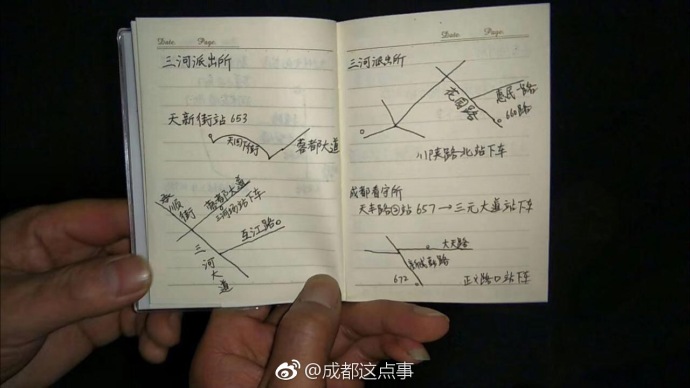 Date. Page.
三河派出所
天新街站653
天回下街
蓉都大道
顺街
蓉都大道
三河场站下车
互江路
三河大道
Date. Page.
三河派出所
花园路
惠民一路
660路
川陕路北站下车
成都看守所
天车路②站657→三元大道站下车
大天路
新成彭路
672
正义路口站下车
@成都这点事